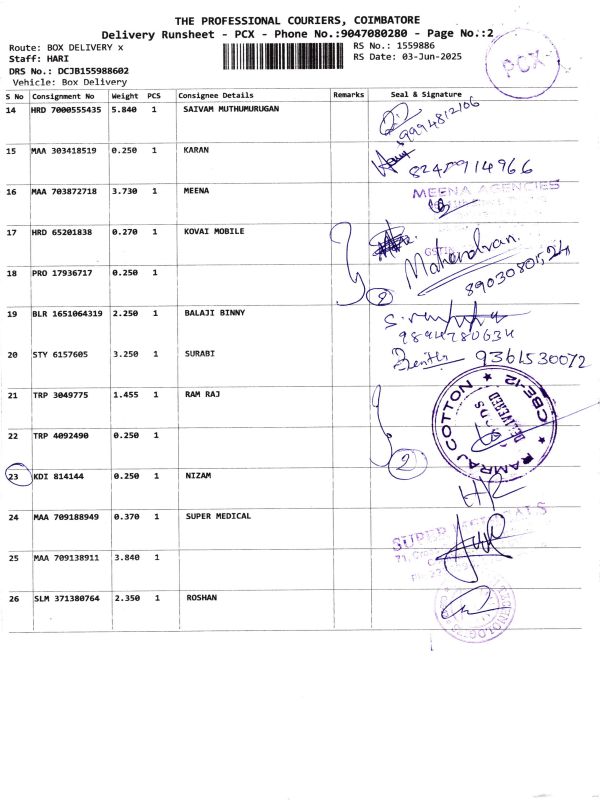 THE PROFESSIONAL COURIERS, COIMBATORE
Delivery Runsheet - PCX - Phone No.:9047080280 - Page No.:2
Route: BOX DELIVERY x RS No.: 1559886
Staff: HARI RS Date: 03-Jun-2025
DRS No.: DCJB155988602
Vehicle: Box Delivery
PCX
S No Consignment No Weight PCS Consignee Details Remarks Seal & Signature
14 HRD 7000555435 5.840 1 SAIVAM MUTHUMURUGAN 9994812106
15 MAA 303418519 0.250 1 KARAN
16 MAA 703872718 3.730 1 MEENA MEENA AGENCIES
17 HRD 65201838 0.270 1 KOVAI MOBILE Mahendran
18 PRO 17936717 0.250 1 2
19 BLR 1651064319 2.250 1 BALAJI BINNY 9894780634
20 STY 6157605 3.250 1 SURABI 9361530072
21 TRP 3049775 1.455 1 RAM RAJ RAMRAJ COTTON CBE-12 DELIVERED
22 TRP 4092490 0.250 1 2
23 KDI 814144 0.250 1 NIZAM
24 MAA 709188949 0.370 1 SUPER MEDICAL SUPER
25 MAA 709138911 3.840 1
26 SLM 371380764 2.350 1 ROSHAN